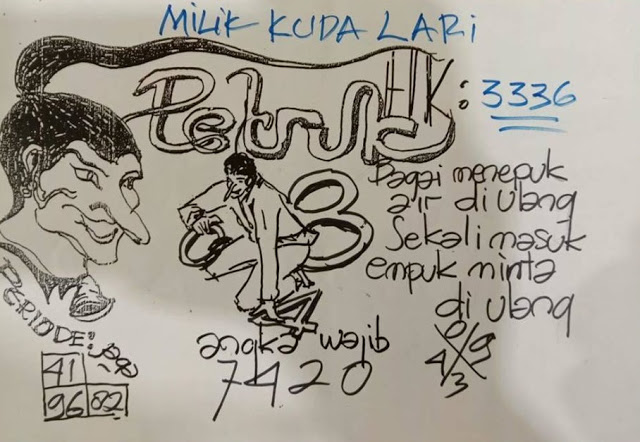 MILIK KUDA LARI
Petruk HK: 3336
Bagai menepuk
air di ulang
Sekali masuk
empuk minta
di ulang
PERIODE:
41
96 82
angka wajib
7420
0 9
4 3